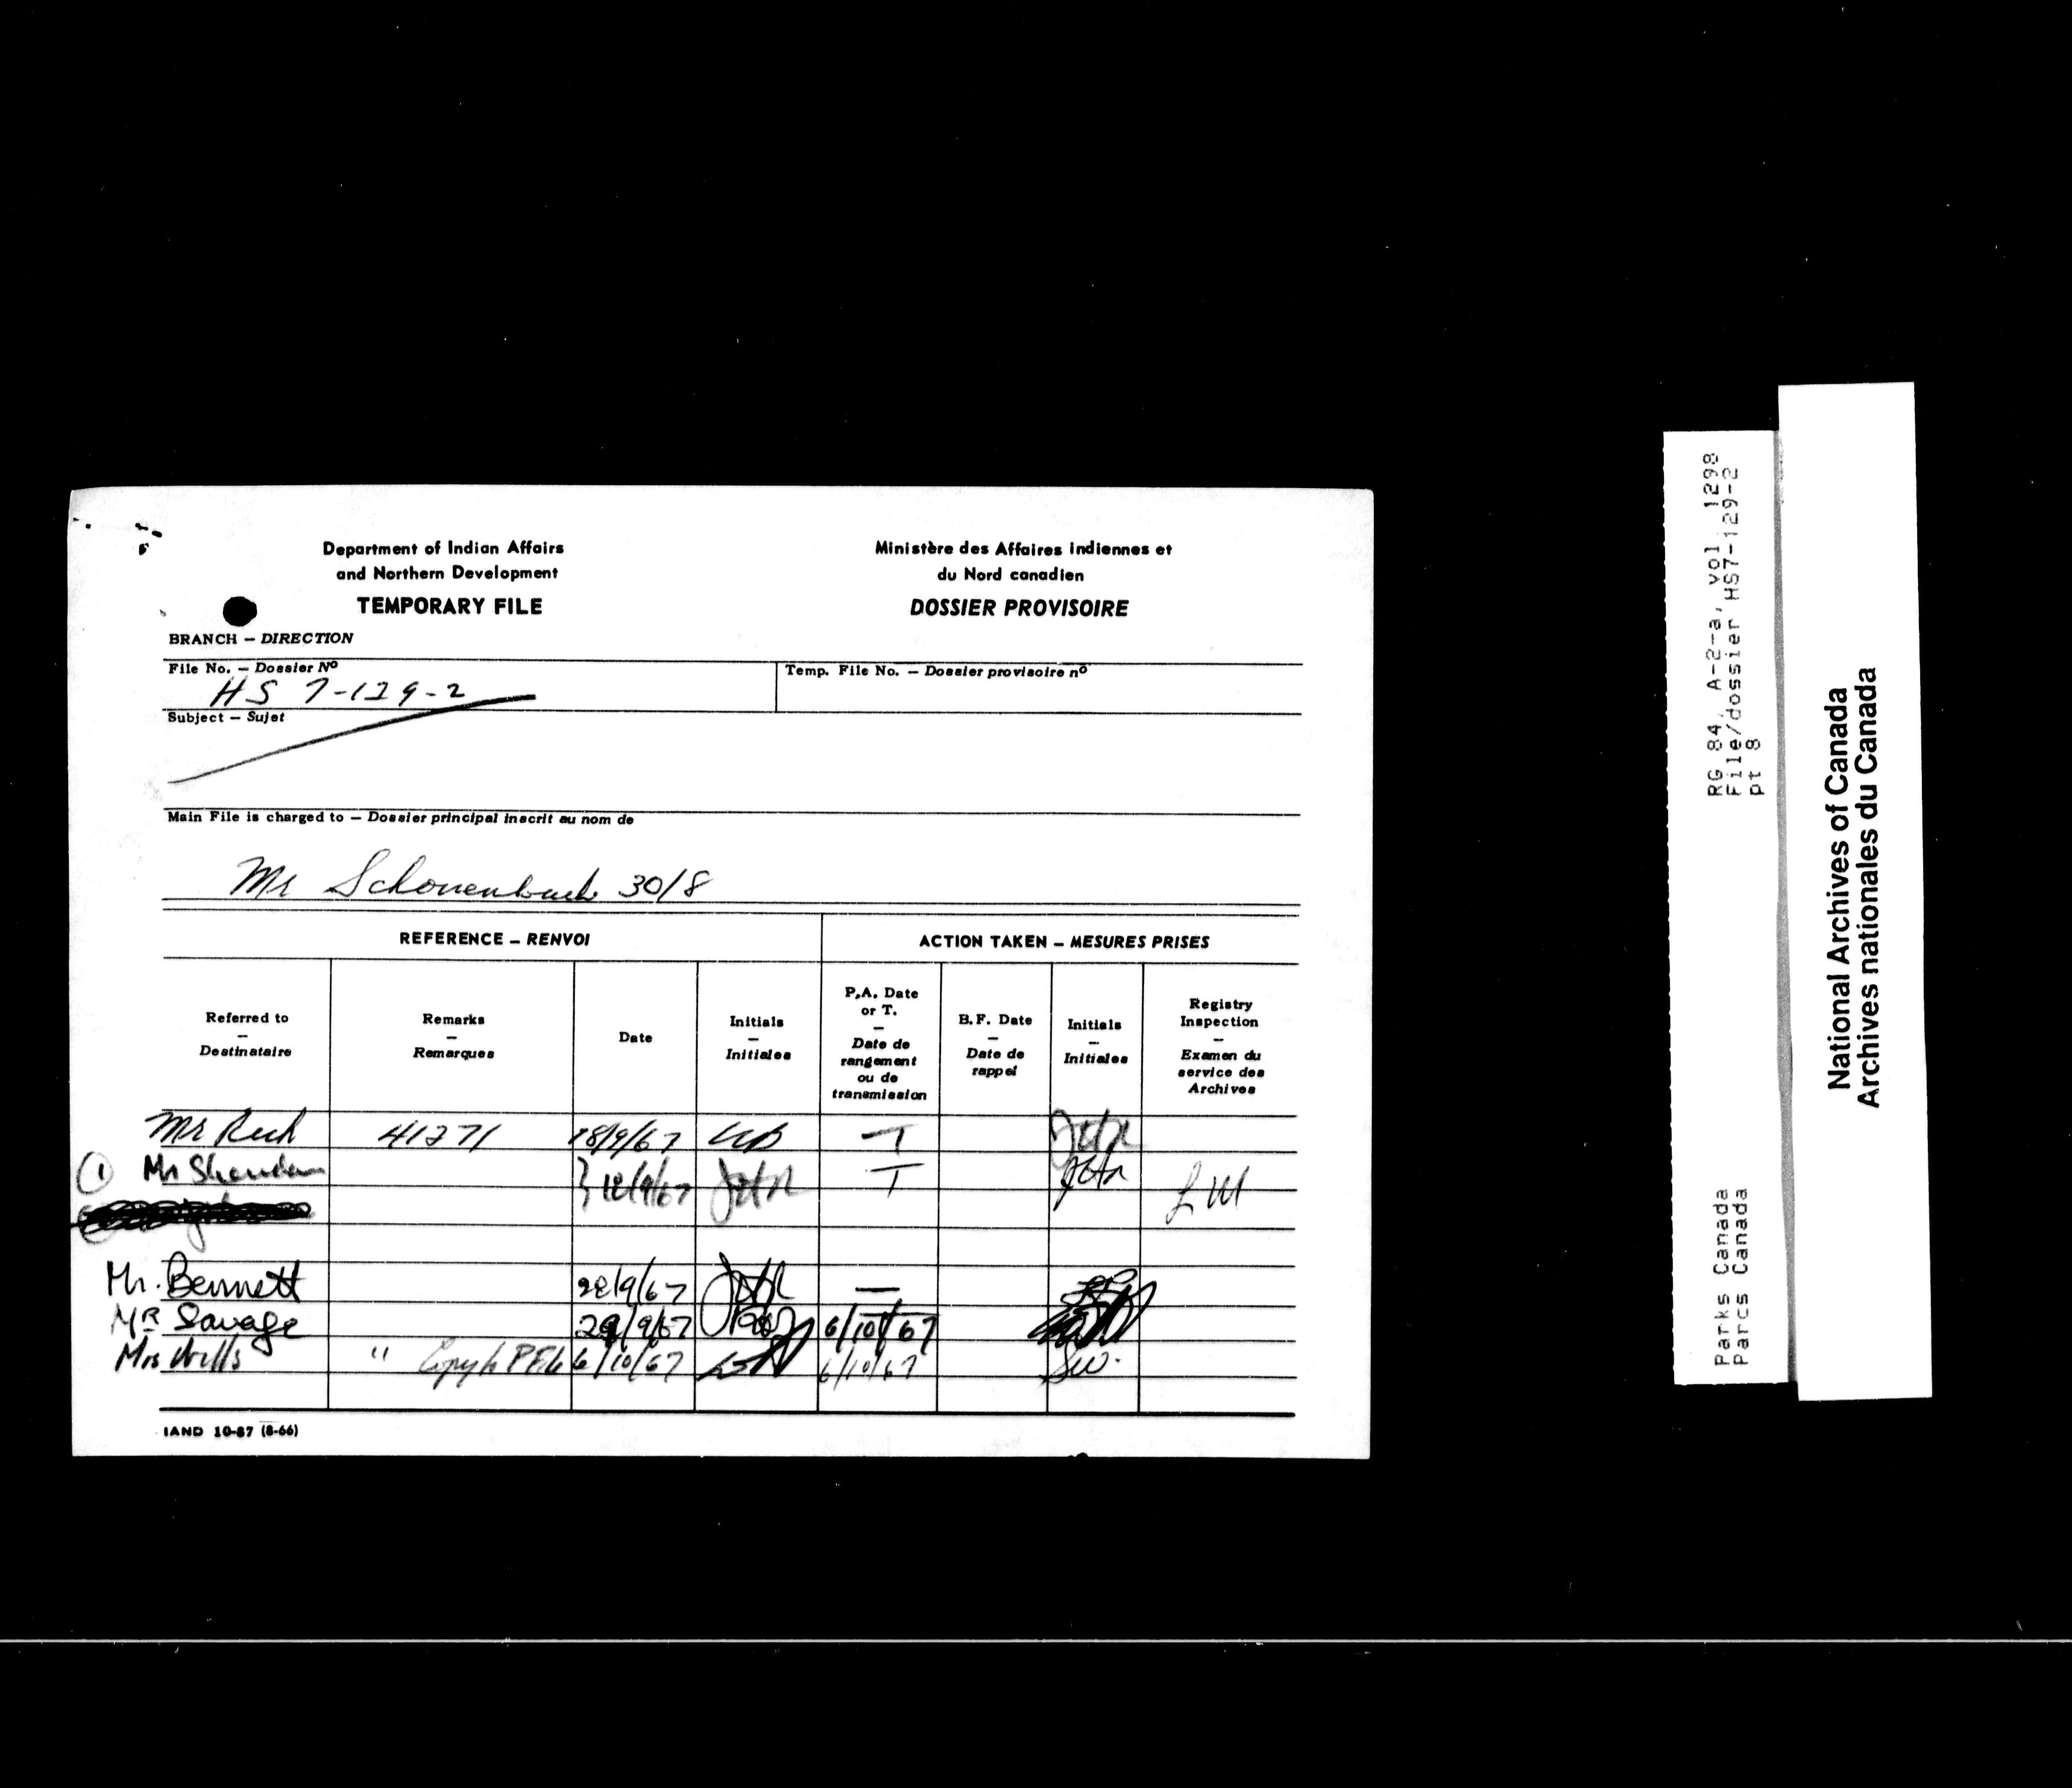 Department of Indian Affairs
and Northern Development
TEMPORARY FILE
Ministère des Affaires indiennes et
du Nord canadien
DOSSIER PROVISOIRE
BRANCH – DIRECTION
File No. – Dossier Nº
HS 7-129-2
Temp. File No. – Dossier provisoire nº
Subject – Sujet
Main File is charged to – Dossier principal inscrit au nom de
Mr 30/8
REFERENCE – RENVOI
ACTION TAKEN – MESURES PRISES
Referred to
–
Destinataire
Remarks
–
Remarques
Date
Initials
–
Initiales
P.A. Date
or T.
–
Date de
rangement
ou de
transmission
B.F. Date
–
Date de
rappel
Initials
–
Initiales
Registry
Inspection
–
Examen du
service des
Archives
Mr 41271 18/9/67 T
① Mr 18/9/67 T
Mr. Bennett 28/9/67 —
MR Savage 29/9/67 6/10/67
Mrs Wells " 6/10/67 6/10/67 SW.
IAND 10-87 (8-66)
RG 84, A-2-a, vol. 1298
File/dossier HS7-129-2
pt 8
Parks Canada
Parcs Canada
National Archives of Canada
Archives nationales du Canada